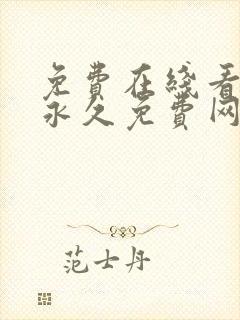 免费在线看
永久免费网
范士丹